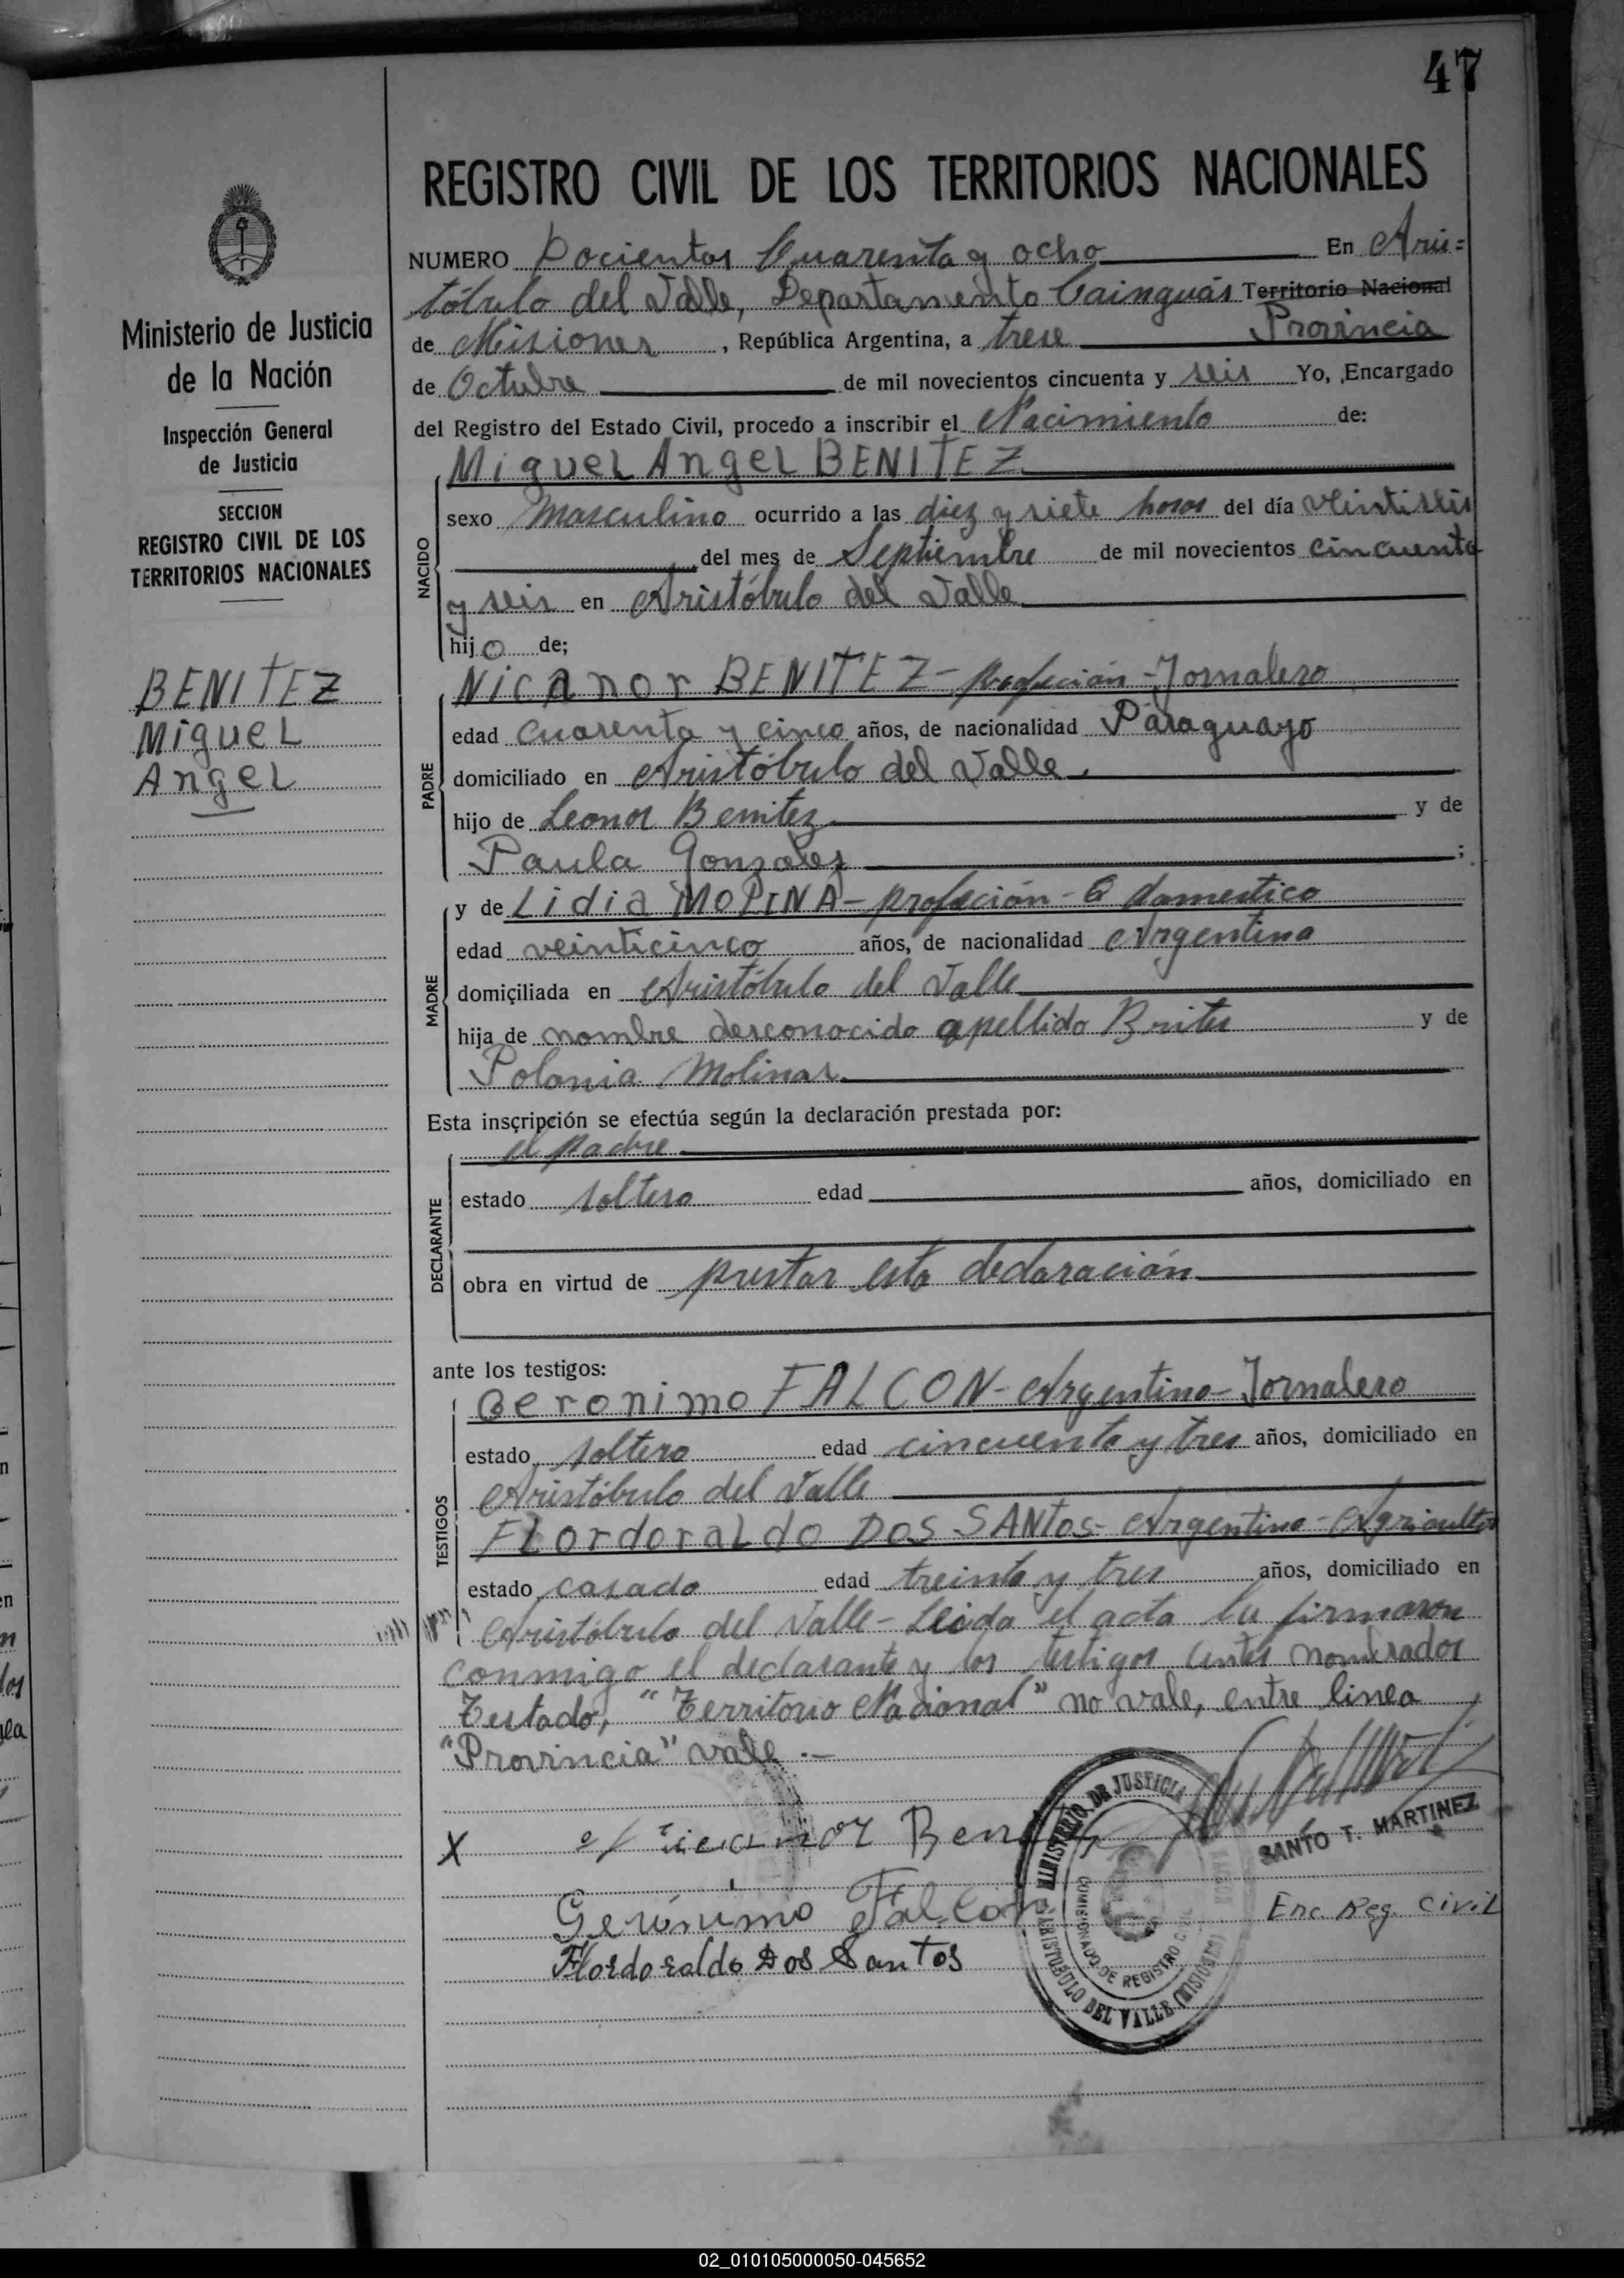 47
REGISTRO CIVIL DE LOS TERRITORIOS NACIONALES
Ministerio de Justicia
de la Nación
Inspección General
de Justicia
SECCION
REGISTRO CIVIL DE LOS
TERRITORIOS NACIONALES
BENITEZ
Miguel
Angel
NUMERO Docientos Cuarenta y ocho En Aris=
tóbulo del Valle, Departamento Cainguás Territorio Nacional
de Misiones, República Argentina, a trese Provincia
de Octubre de mil novecientos cincuenta y seis Yo, Encargado
del Registro del Estado Civil, procedo a inscribir el Nacimiento de:
NACIDO
Miguel Angel BENITEZ
sexo Masculino ocurrido a las diez y siete horas del día veintiseis
del mes de Septiembre de mil novecientos cincuenta
y seis en Aristóbulo del Valle
hijo de;
PADRE
Nicanor BENITEZ - profeción - Jornalero
edad cuarenta y cinco años, de nacionalidad Paraguayo
domiciliado en Aristóbulo del Valle.
hijo de Leonor Benitez y de
Paula Gonzalez ;
MADRE
y de Lidia MOLINA - profeción - Q domestico
edad veinticinco años, de nacionalidad Argentina
domiciliada en Aristóbulo del Valle
hija de nombre desconocido apellido Brites y de
Polonia Molinas
Esta inscripción se efectúa según la declaración prestada por:
DECLARANTE
el padre
estado soltero edad años, domiciliado en
obra en virtud de prestar esta declaración
ante los testigos:
TESTIGOS
Geronimo FALCON - Argentino - Jornalero
estado soltero edad cincuenta y tres años, domiciliado en
Aristóbulo del Valle
Flordoraldo DOS SANTOS - Argentino - Agricultor
estado casado edad treinta y tres años, domiciliado en
Aristóbulo del Valle - Leida el acta la firmaron
conmigo el declarante y los testigos antes nombrados
Testado, "Territorio Nacional" no vale, entre linea
"Provincia" vale .-
X Nicanor Benitez
Gerónimo Falcon
Flordoraldo Dos Santos
MINISTERIO DE JUSTICIA
COMISIONADO DE REGISTRO
ARISTOBULO DEL VALLE (MISIONES)
SANTO T. MARTINEZ
Enc. Reg. Civil
02_010105000050-045652